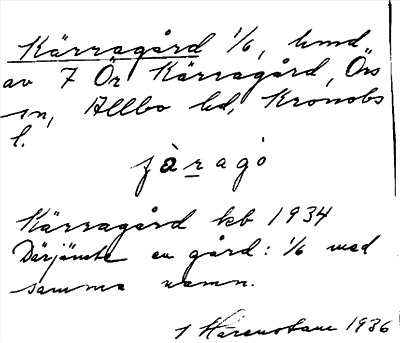 Kärragård 1/6, hmd
av 7 Ör Kärragård, Örs
sn, Allbo hd, Kronobs
l.
jàragó
Kärragård kb 1934
Därjämte en gård: 1/6 med
samma namn.
1936